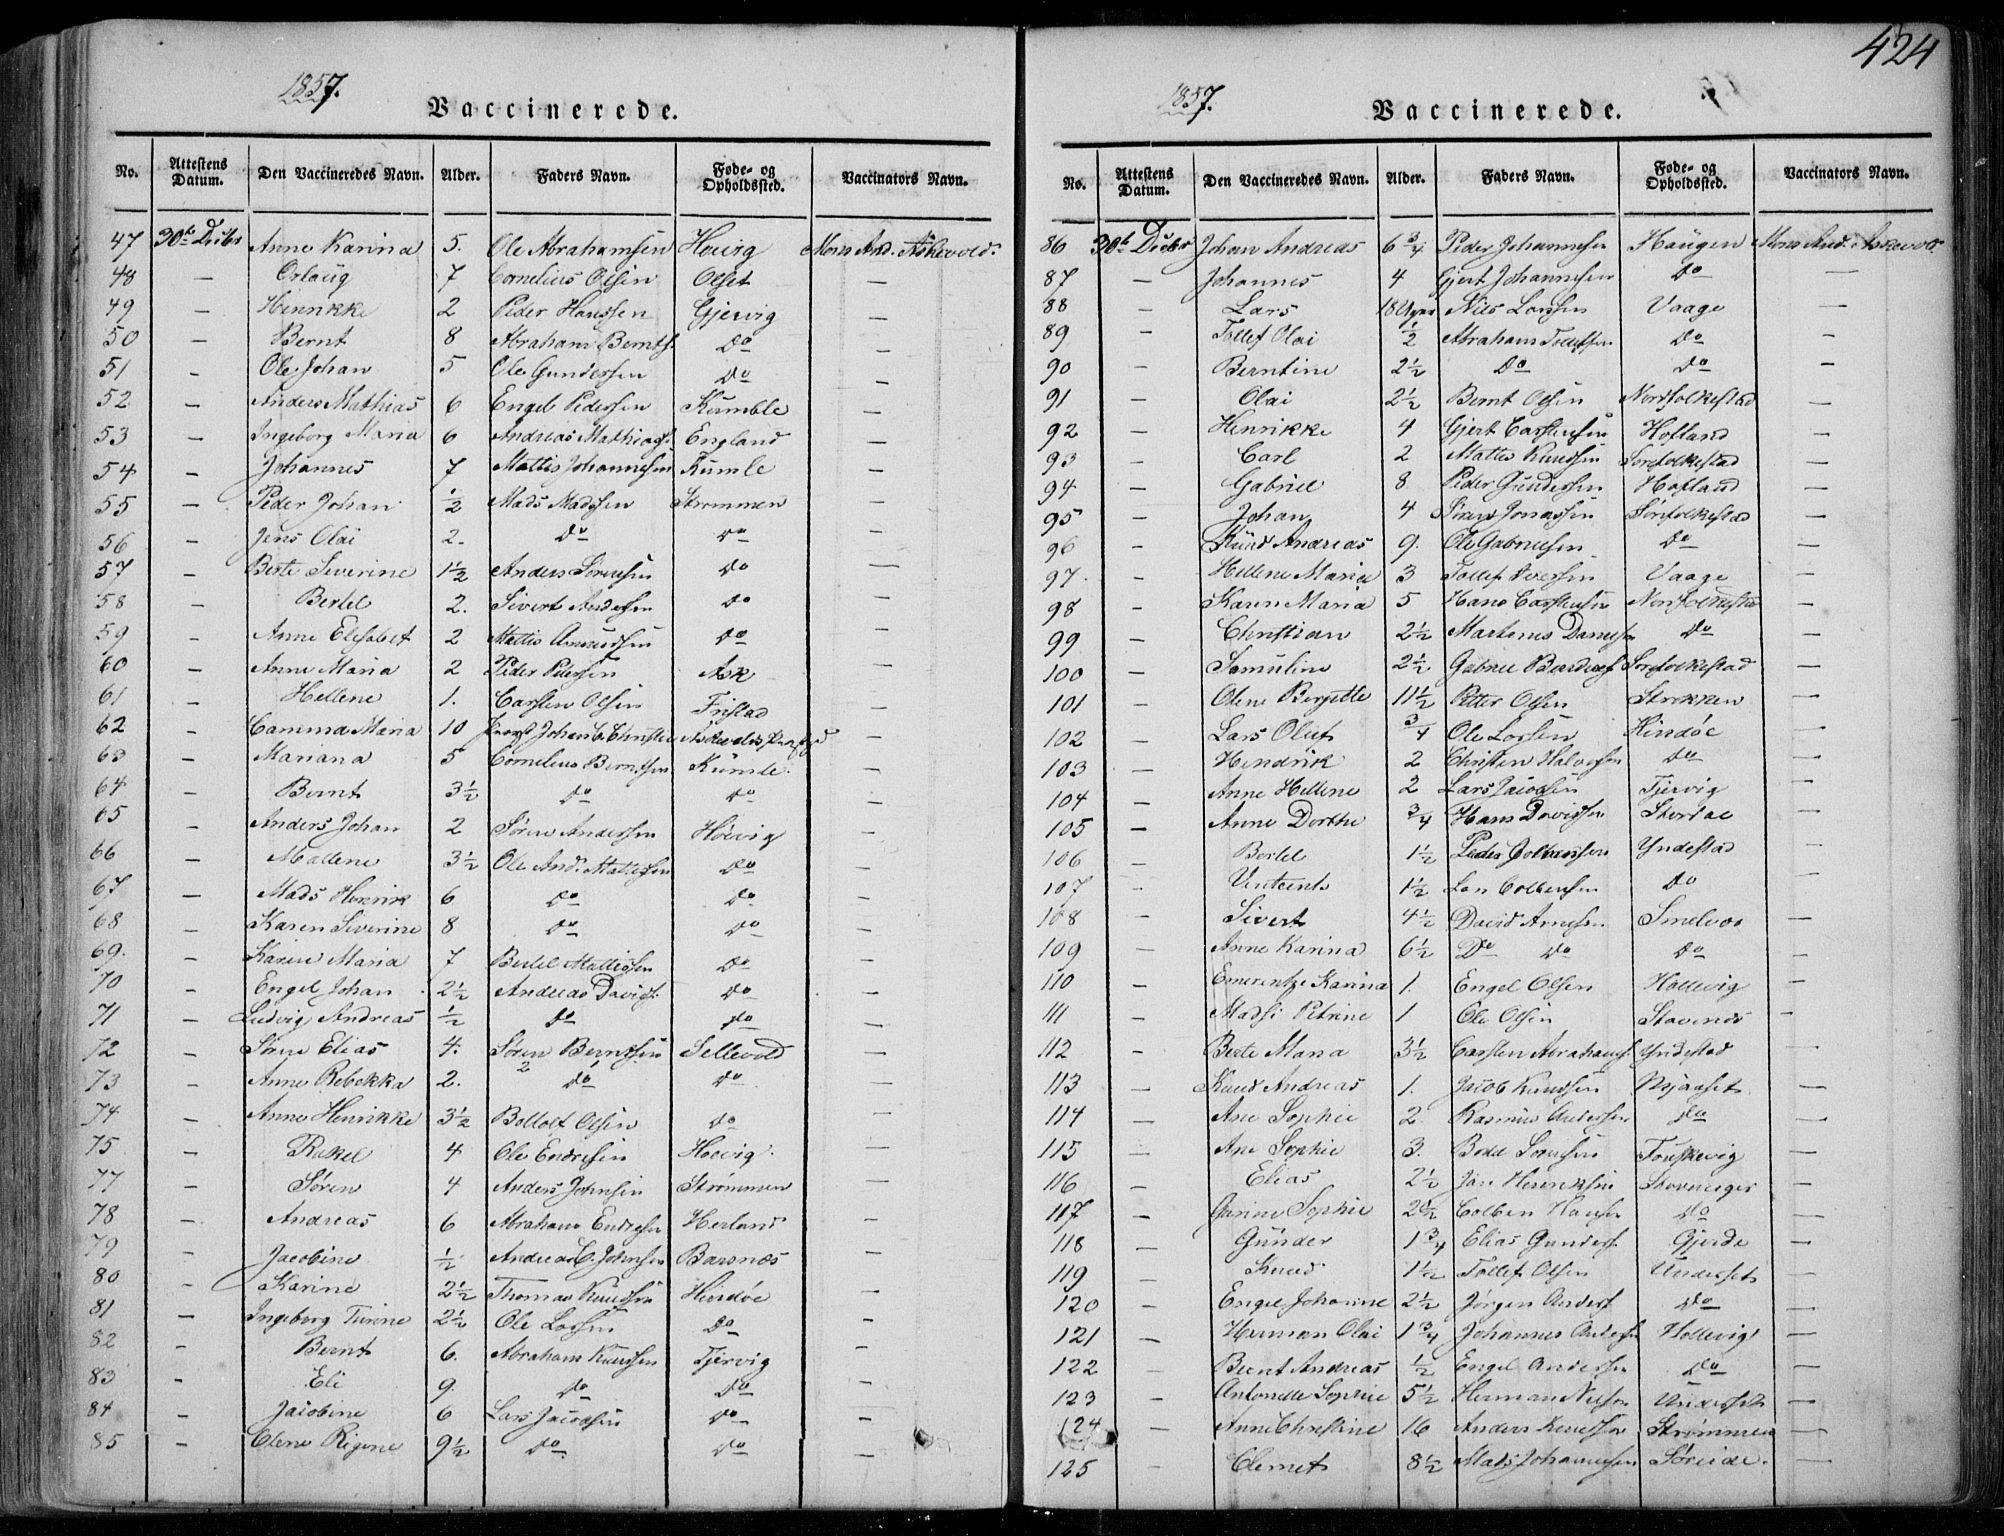 424
1857.
Vaccinerede.
No. Attestens Datum. Den Vaccineredes Navn. Alder. Faders Navn. Føde- og Opholdssted. Vaccinators Navn.
47 30te Decbr Anne Karina 5. Ole Abrahamsen Hoivig Mons And. Askevold.
48 — Orlaug 7 Cornelius Olsen Olset —
49 — Henrikke 2 Peder Hanssen Gjervig —
50 — Bernt 8 Abraham Bernts. do —
51 — Ole Johan 5 Ole Gundersen do —
52 — Anders Mathias 6 Engel Pedersen Kumble —
53 — Ingeborg Maria 6 Andreas Mathias England —
54 — Johannes 7 Mattis Johannesen Kumle —
55 — Peder Johan ½ Mads Madssen Strømmen —
56 — Jens Olai 2. do do —
57 — Berte Severine 1½ Anders Sørensen do —
58 — Bertel 2. Sivert Andersen do —
59 — Anne Elisabet 2 Mattis Amundsen do —
60 — Anne Maria 2 Peder Pedersen Ask —
61 — Hellene 1. Carsten Olsen Fristad —
62 — Camma Maria 10 Johan C. Christie —
63 — Mariana 5 Cornelius Berntsen Kumle —
64 — Bernt 3½ do do —
65 — Anders Johan 2 Søren Anderssen Høivig —
66 — Mallene 3½ Ole And. Mattissen do —
67 — Mads Henrik 6 do do —
68 — Karen Siverine 8 do do —
69. — Karen Maria 7 Bertel Mattissen do —
70 — Engel Johan 2½ Andreas Davids. do —
71 — Ludvig Andreas ½ do do —
72 — Søren Elias 4. Søren Berntsen Sellevold —
73 — Anne Rebekka 2. do do —
74 — Anne Henrikke 3½ Bottolf Olsen do —
75 — Rakel 4 Ole Endresen Hoevig —
77 — Søren 4 Anders Johnsen Strømmen —
78 — Andreas 6 Abraham Endresen Herland —
79 — Jacobine ½ Andreas C. Johnsen Barsnes —
80 — Karine 2½ Thomas Knudsen Hindøe —
81 — Ingeborg Turine 2½ Ole Larsen do —
82 — Bernt 6. Abraham Knudsen Tjervig —
83 — Eli 9. do do —
84 — Jacobine 6 Lars Jacobsen do —
85 — Elene Rigene 9½ do do —
1857.
Vaccinerede.
No. Attestens Datum. Den Vaccineredes Navn. Alder. Faders Navn. Føde- og Opholdssted. Vaccinators Navn.
86 30te Decbr Johan Andreas 6¾ Peder Johannesen Haugen Mons And. Askevold
87 — Johannes 4 Gjert Johannesen do —
88 — Lars 18 Uger Nils Larsen Vaage —
89 — Tollef Olai ½ Abraham Tollefsen do —
90 — Berntine 2½ do do —
91 — Olai 2½ Bernt Olsen Nordfolkestad —
92 — Henrikke 4 Gjert Carstensen Hofland —
93 — Carl 2 Mattis Knudsen Sørfolkestad —
94 — Gabriel 8 Peder Gundersen Hofland —
95 — Johan 4 Søren Jonassen Sørfolkestad —
96 — Knud Andreas 9. Ole Gabrielsen do —
97. — Hellene Maria 3 Tollef Iversen Vaage —
98 — Karen Maria 5 Hans Carstensen Nordfolkestad —
99 — Christian 2½ Martenus Danielsen do —
100 — Samuline 2½ Gabriel Sørfolkestad —
101 — Olene Bergitte 11½ Petter Olsen Strekken —
102 — Lars Olut ¾ Ole Larsen Hindøe —
103 — Hendrik 2 Christen Halvorsen do —
104 — Anne Hellene 2 Lars Jacobsen Tjervig —
105 — Anne Dorthe ¾ Hans Davidsen Stordae —
106 — Bertel 1½ Peder Colbensen Yndestad —
107 — Vintsents 1½ Lars Colbensen do —
108 — Sivert 4½ David Arnesen Smelvær —
109 — Anne Karina 6½ Do do do —
110 — Emerentze Karina 1. Engel Olsen Hollevig —
111 — Madsi Petrine 1 Ole Olsen Stavenes —
112 — Berte Maria 3½ Carsten Abrahams. Yndestad —
113 — Knud Andreas 1. Jacob Knudsen —
114 — Ane Sophie 2. Rasmus Andersen do —
115 — Ane Sophie 3. Sørensen —
116 — Elias 2½ Jan Henriksen —
117 — Garine Sophie 2½ Colben Hansen do —
118 — Gunder 1¾ Elias Gunders. Gjerde —
119 — Knud 1½ Tollef Olsen Underset —
120 — Engel Johanne 2½ Jørgen Anders. do —
121 — Herman Olai 1¾ Johannes Andersen Hollevig —
122 — Bernt Andreas ½ Engel Andersen do —
123 — Antonette Sophie 5½ Herman Nilsen Underset —
124 — Anne Christine 16 Anders Knudsen Strømmen —
125 — Clemet 8½ Mads Johannesen Søreide. —